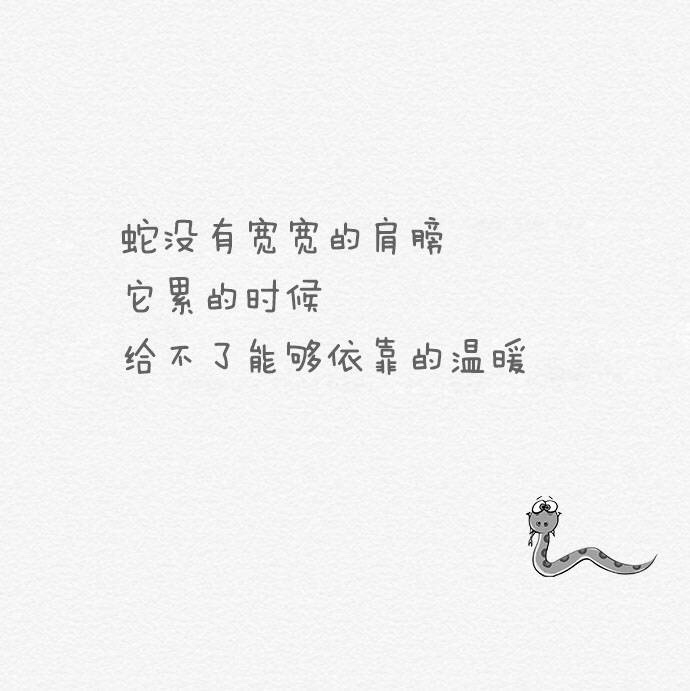 蛇没有宽宽的肩膀
它累的时候
给不了能够依靠的温暖